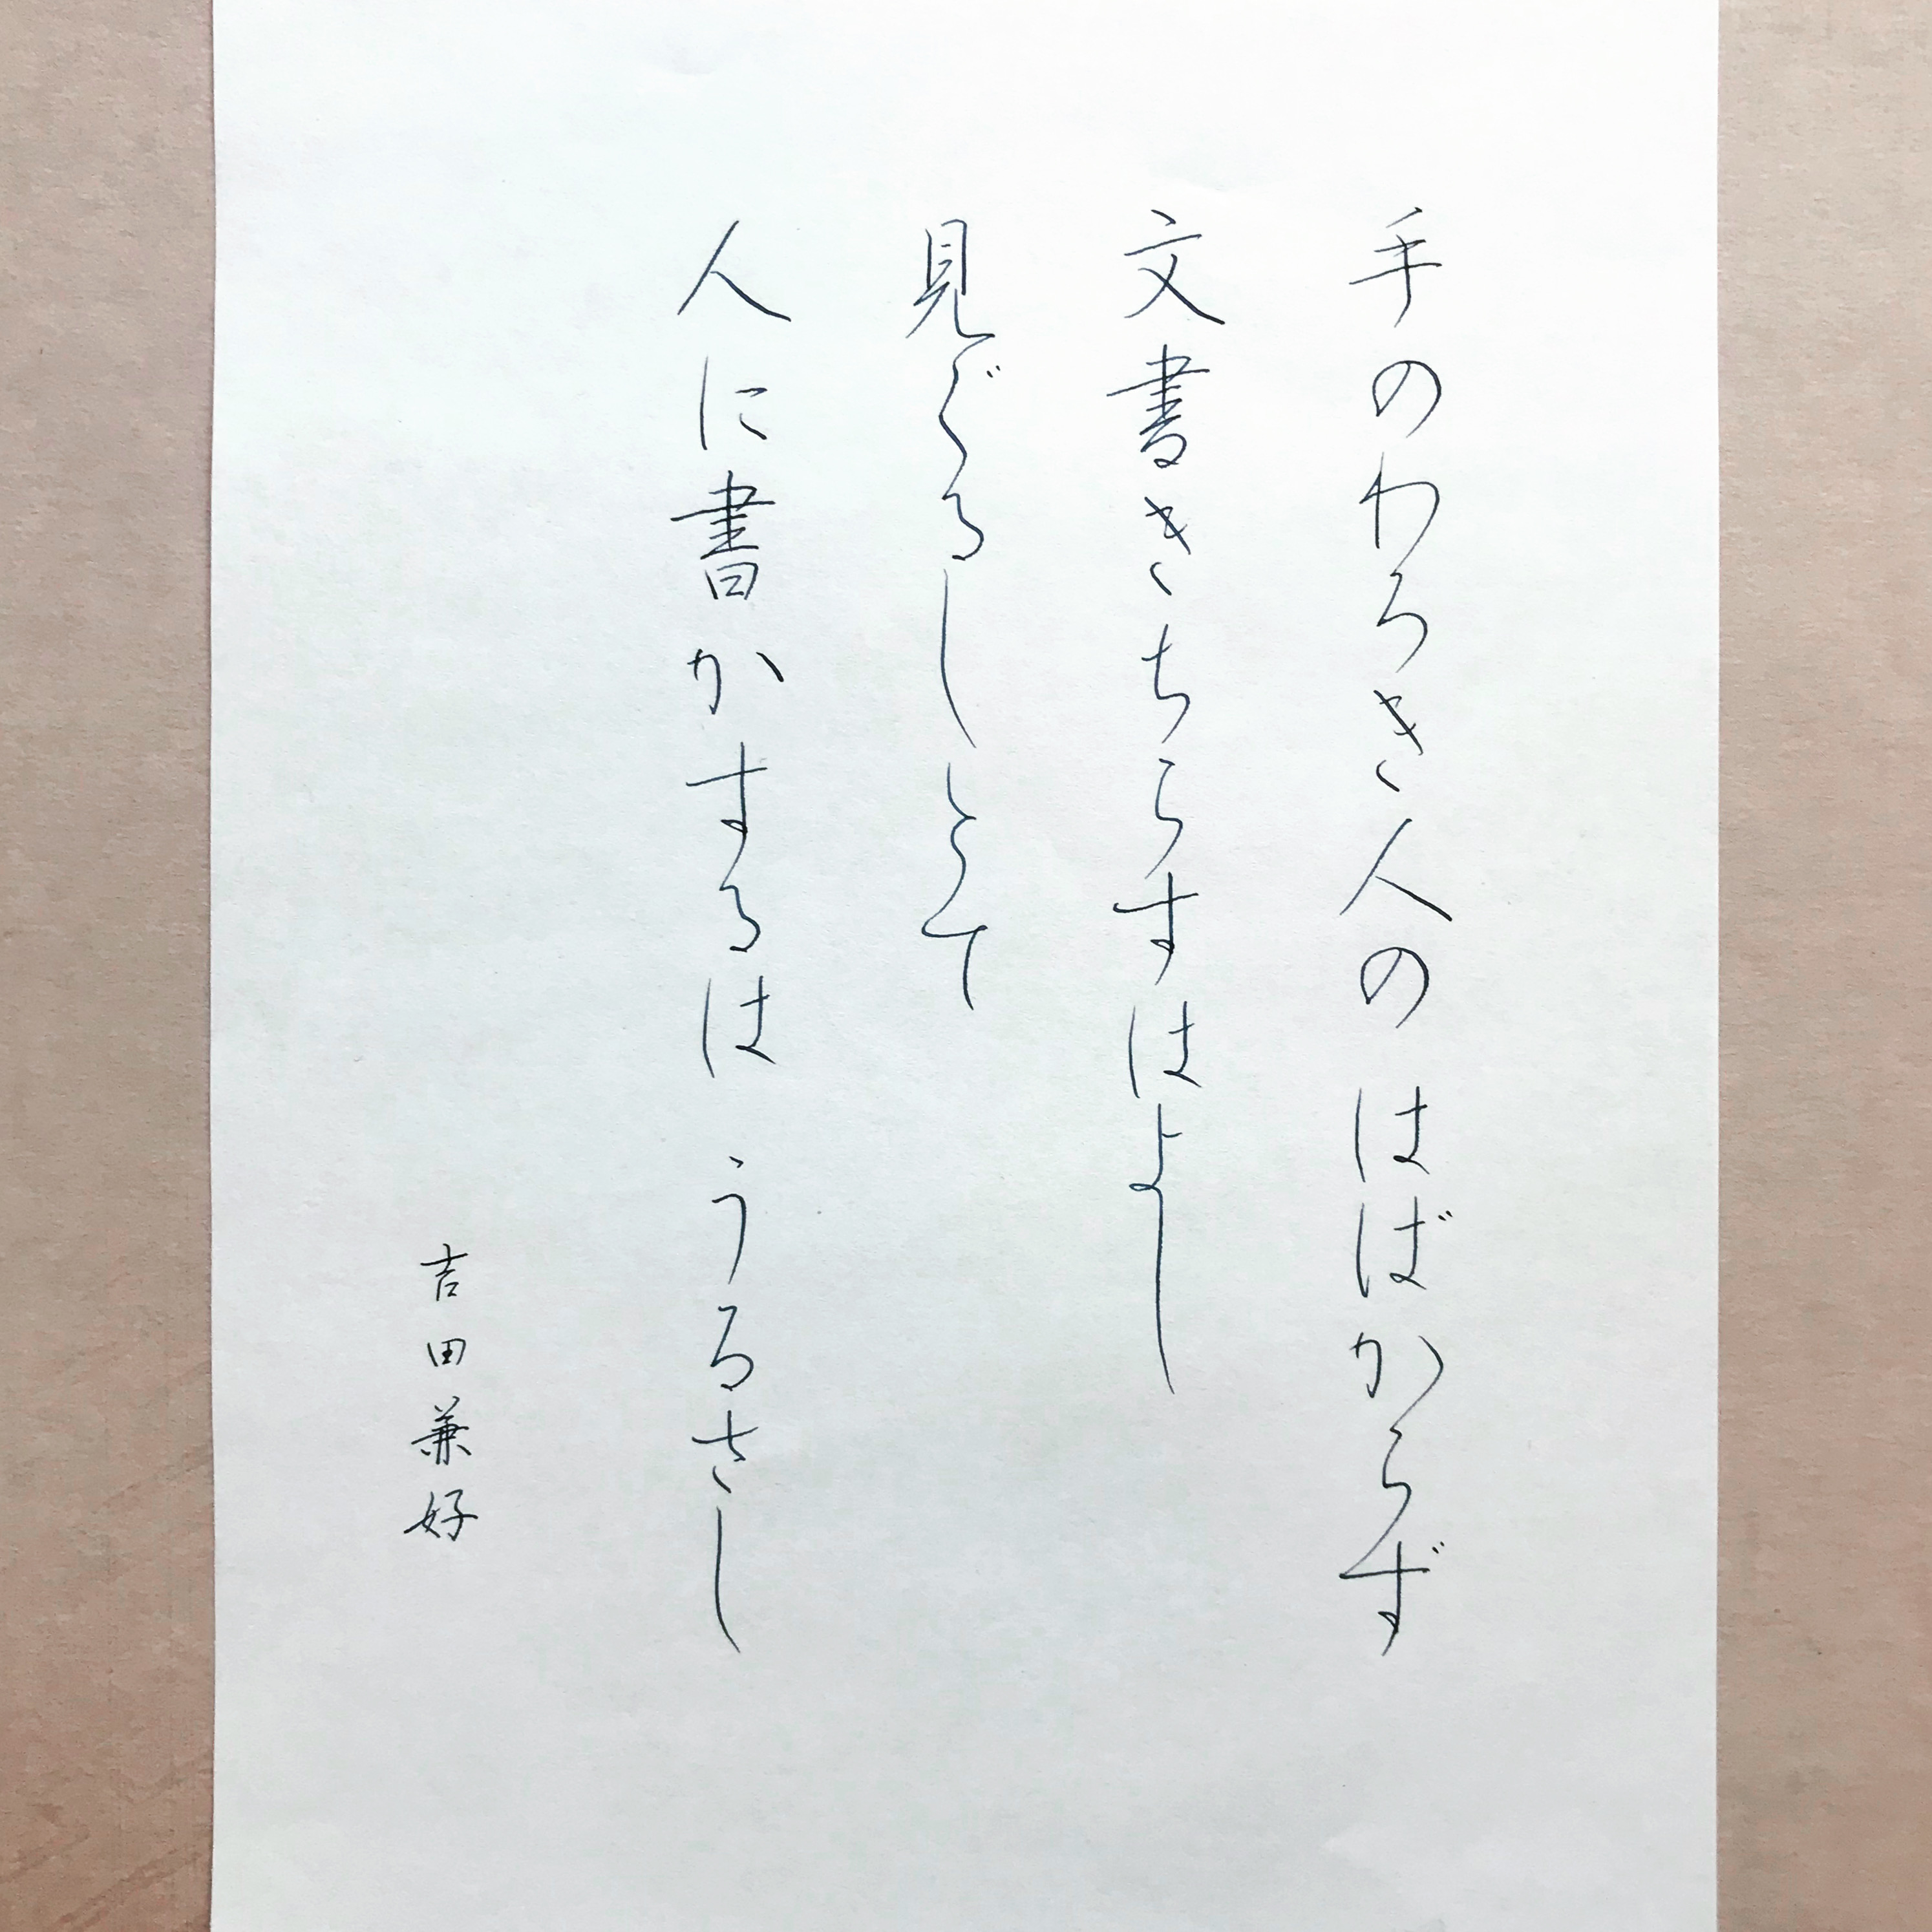 手のわろき人の はばからず
文書きちらすはよし
見ぐるしとて
人に書かするは うるさし
吉田兼好